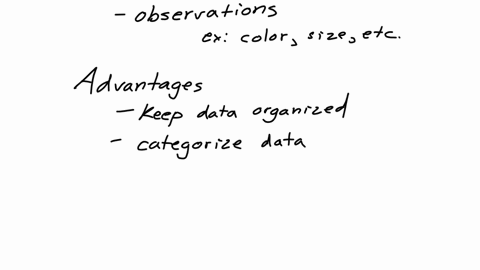 - observations
ex: color, size, etc.
Advantages
- keep data organized
- categorize data